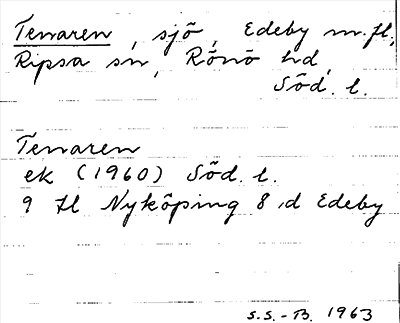 Tenaren, sjö, Edeby m.fl.,
Ripsa sn, Rönö hd,
Söd. l.
Tenaren
ek (1960) Söd. l.
9 H Nyköping 8 d Edeby
S.S.-B. 1963